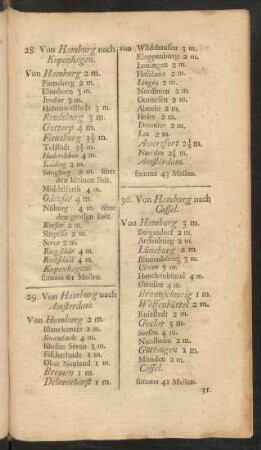 28. Von Hamburg nach
Kopenhagen.
Von Hamburg 2 m.
Pinneberg 2 m.
Elmshorn 3 m.
Itzehoe 3 m.
Hohenwestädt 3 m.
Rendsburg 3 m.
Gottorp 4 m.
Flensburg 3½ m.
Toffstädt 3½ m.
Hadersleben 4 m.
Kolding 2 m.
Snoghoy 2 m. über
den kleinen Belt.
Middelfarth 4 m.
Odensee 4 m.
Nüborg 4 m. über
den grossen Belt.
Korsör 2 m.
Slagelse 2 m.
Soröe 2 m.
Ringstädt 4 m.
Roeskild 4 m.
Kopenhagen.
summa 61 Meilen.
29. Von Hamburg nach
Amsterdam.
Von Hamburg 2 m.
Blanckenese 2 m.
Buxtehude 4 m.
Kloster Seven 3 m.
Fischerhude 2 m.
Ober Neuland 1 m.
Bremen 1 m.
Delmenhorst 1 m.
von Wildshausen 3 m.
Kloppenburg 2 m.
Löningen 2 m.
Haselune 2 m.
Lingen 2 m.
Northorn 2 m.
Ootmersen 2 m.
Almelo 2 m.
Holte 2 m.
Deventer 2 m.
Loo 2 m.
Amersfurt 2½ m.
Naerden 2½ m.
Amsterdam.
summa 43 Meilen.
30. Von Hamburg nach
Cassel.
Von Hamburg 3 m.
Bergendorf 2 m.
Artlenburg 2 m.
Lüneburg 2 m.
3 m.
Ultzen 3 m.
Hanckensbüttel 4 m.
Giffhorn 4 m.
Braunschweig 1 m.
Wolfenbüttel 2 m.
2 m.
Goslar 3 m.
Seesen 4 m.
Northeim 2 m.
Göttingen 2 m.
Münden 2 m.
Cassel.
summa 41 Meilen.
31.